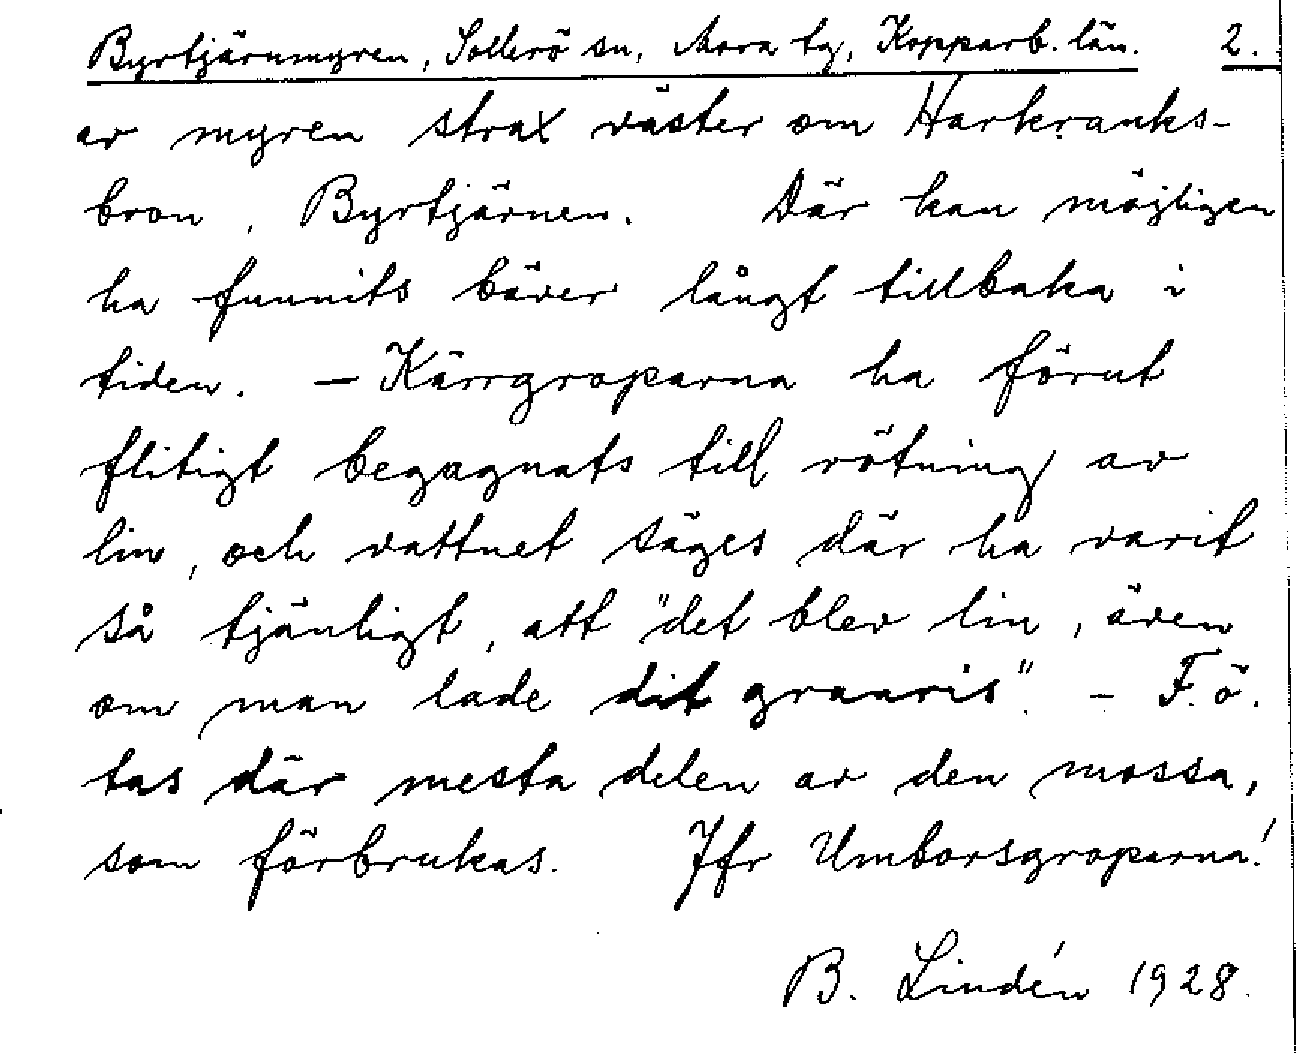 Byrtjärnmyren, Sollerö sn, Mora tg, Kopparb. län. 2.
av myren strax väster om Harkranks-
bron, Byrtjärnen. Där kan möjligen
ha funnits bäver långt tillbaka i
tiden. – Kärrgroparna ha förut
flitigt begagnats till rötning av
lin, och vattnet säges där ha varit
så tjänligt, att "det blev lin, även
om man lade dit granris". – F.ö.
tas där mesta delen av den mossa,
som förbrukas. Jfr Umborsgroparna!
B. Lindén 1928.